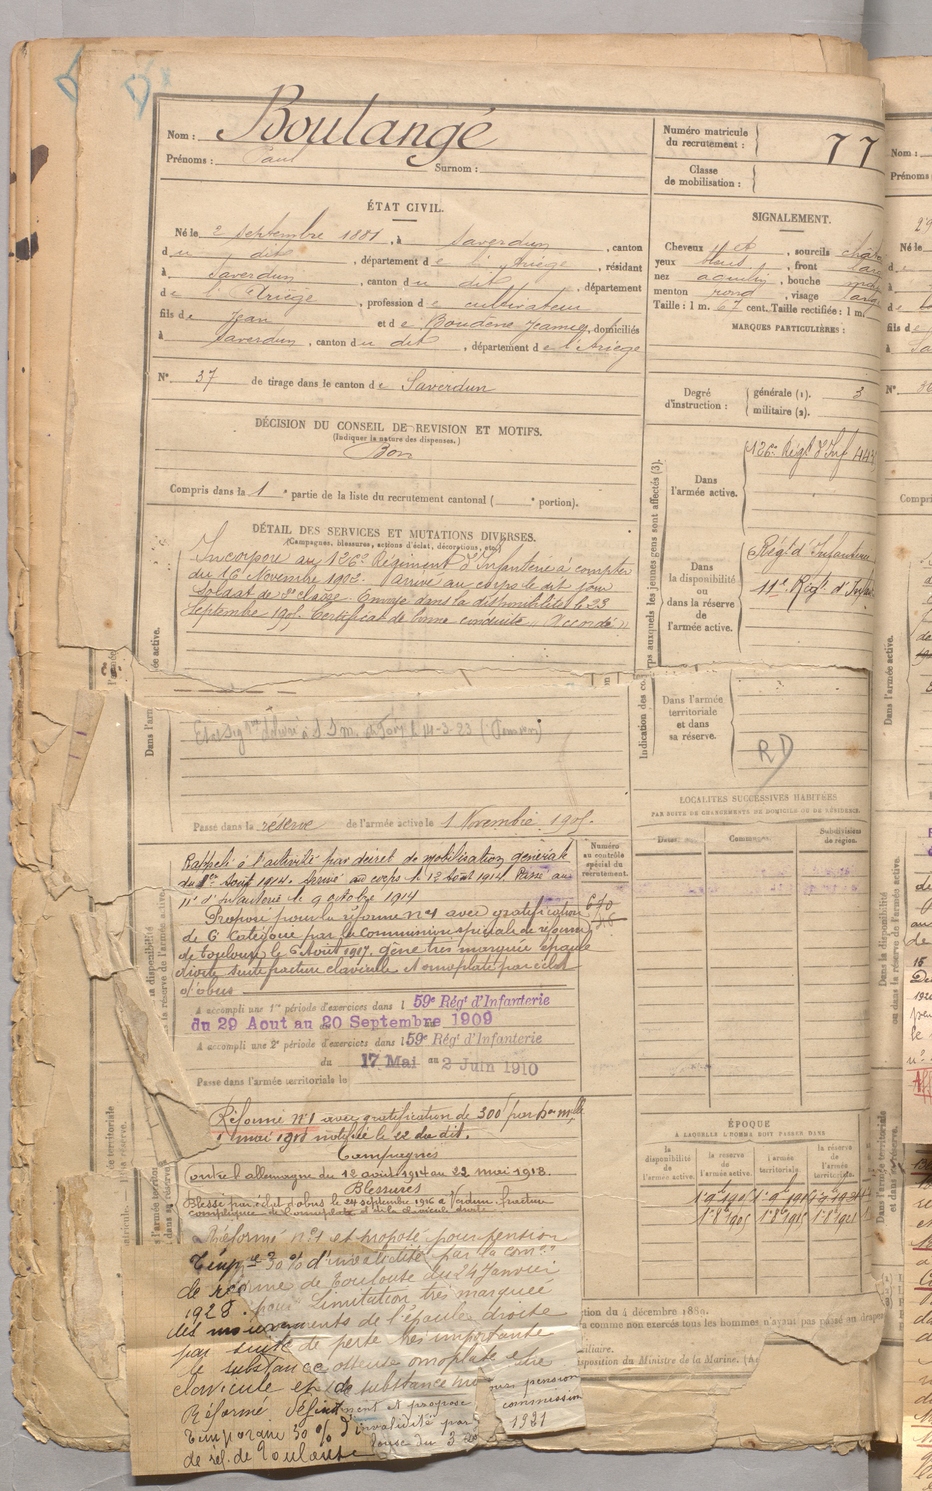 Boulangé
Nom :
Prénoms : Paul
Surnom :
Numéro matricule du recrutement : 77
Classe de mobilisation :
ÉTAT CIVIL.
Né le 2 septembre 1881, à Saverdun, canton
du dit, département de l'Ariège, résidant
à Saverdun, canton du dit, département
de l'Ariège, profession de cultivateur
fils de Jean et de Boudène Jeanne, domiciliés
à Saverdun, canton du dit, département de l'Ariège
N° 37 de tirage dans le canton de Saverdun
SIGNALEMENT.
Cheveux, sourcils
yeux bleus, front
nez aquilin, bouche
menton rond, visage
Taille : 1 m. 67 cent. Taille rectifiée : 1 m.
MARQUES PARTICULIÈRES :
Degré d'instruction :
générale (1). 3
militaire (2).
DÉCISION DU CONSEIL DE REVISION ET MOTIFS.
(Indiquer la nature des dispenses.)
Bon
Compris dans la 1e partie de la liste du recrutement cantonal ( e portion).
DÉTAIL DES SERVICES ET MUTATIONS DIVERSES.
(Campagnes, blessures, actions d'éclat, décorations, etc.)
Incorporé au 126e Régiment d'Infanterie à compter
du 16 Novembre 1902. arrivé au corps le dit jour
Soldat de 2e classe. Envoyé dans la disponibilité le 23
Septembre 1905. Certificat de bonne conduite "Accordé"
Dans l'armée active.
126e Régt d'Inf
Dans la disponibilité ou dans la réserve de l'armée active.
Régt d'Infanterie
11e Régt d'Inf
Dans l'armée territoriale et dans sa réserve.
RD
14-3-23
Passé dans la réserve de l'armée active le 1 Novembre 1905.
LOCALITÉS SUCCESSIVES HABITÉES
PAR SUITE DE CHANGEMENTS DE DOMICILE OU DE RÉSIDENCE.
Dates.
Communes
Subdivisions de région.
Numéro au contrôle spécial du recrutement.
Rappelé à l'activité par décret de mobilisation générale
du 1er Août 1914. Arrivé au corps le 12 Août 1914. Passé au
11e d'infanterie le 9 octobre 1914
Proposé pour la réforme n°1 avec gratification
de 6 Catégorie par la commission spéciale de réforme
de Toulouse le 6 Août 1917. Gène très marquée épaule
droite suite fracture clavicule et omoplate par éclat
d'obus
A accompli une 1re période d'exercices dans l 59e Régt d'Infanterie
du 29 Aout au 20 Septembre 1909
A accompli une 2e période d'exercices dans l 59e Régt d'Infanterie
du 17 Mai au 2 Juin 1910
Passé dans l'armée territoriale le
Réformé N°1 avec gratification de 300f
notifié le 22 du dit.
Campagnes
Contre l'allemagne du 12 août 1914 au 22 mai 1918.
Blessures
Blessé par éclat d'obus le 24 septembre 1916 à Verdun fracture
compliquée de l'omoplate et de la clavicule droite
ÉPOQUE
A LAQUELLE L'HOMME DOIT PASSER DANS
la disponibilité de
la réserve de l'armée active.
l'armée territoriale.
la réserve de l'armée territoriale
Réformé n°1 et proposé pour pension
Tempre 30 % d'invalidité par la comon
de réforme de Toulouse du 24 Janvier
1928. pour Limitation très marquée
des mouvements de l'épaule droite
par suite de perte très importante
de substance osseuse omoplate et de
clavicule et de substance
Réformé Définitivement et proposé pour pension
Temporaire 30 % d'invalidité par commission
de réf. de Toulouse du 3 1931
tion du 4 décembre 1889.
comme non exercés tous les hommes n'ayant pas passé au drapeau
disposition du Ministre de la Marine.